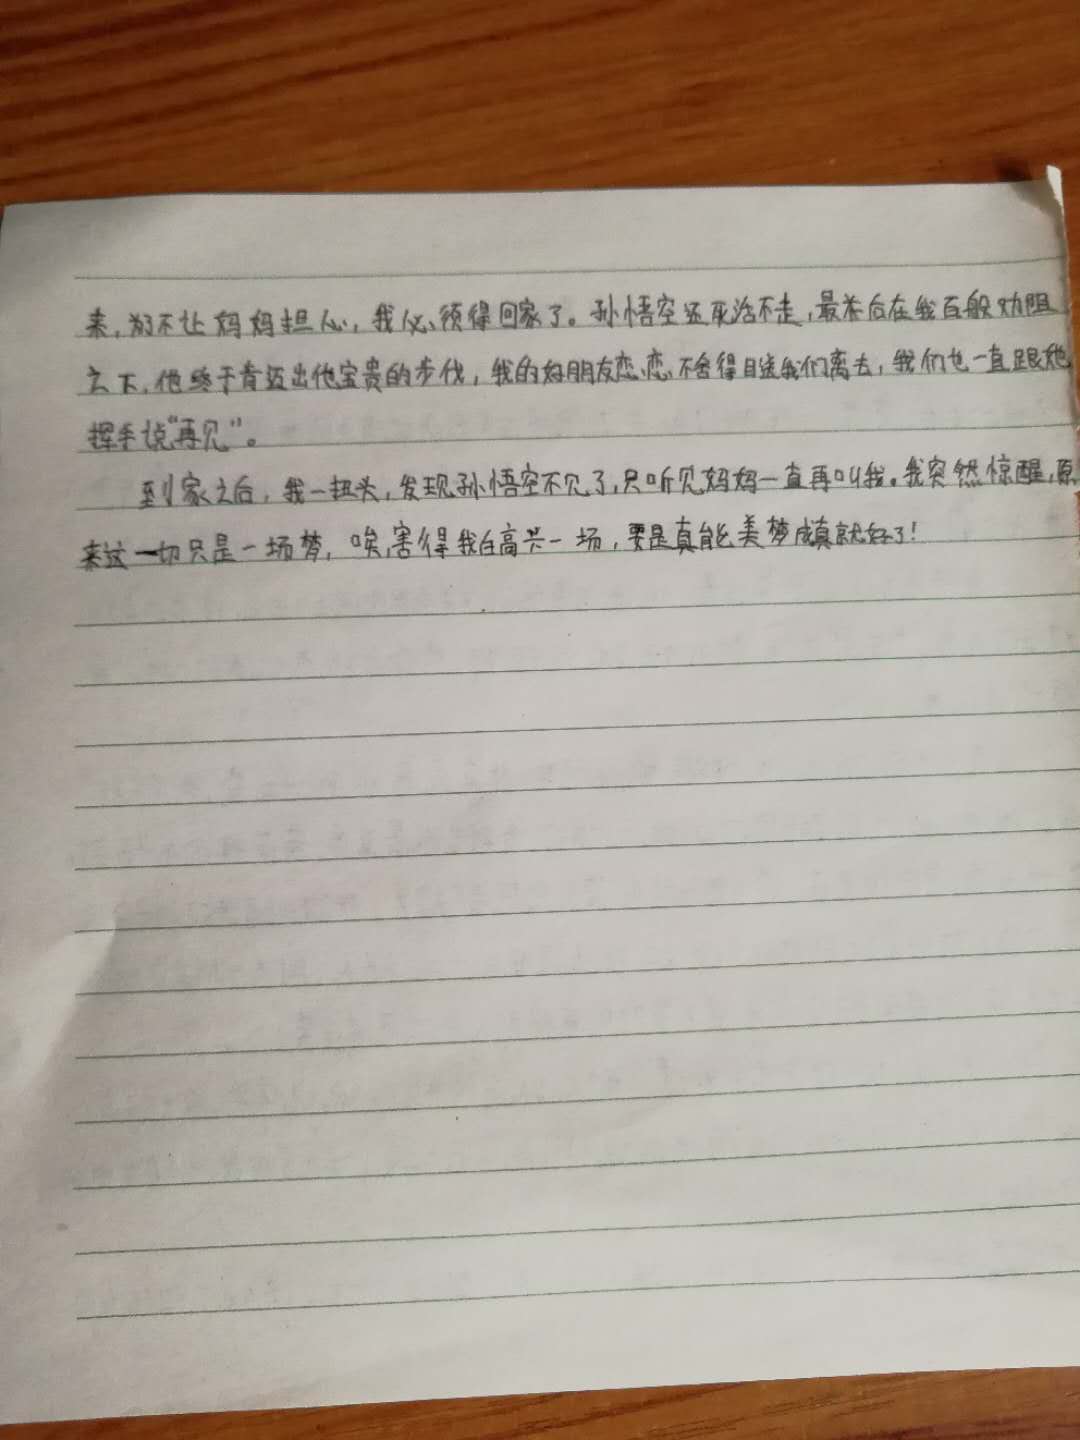 来,为了不让妈妈担心,我必须得回家了。孙悟空还死活不走,最后在我百般劝阻
之下,他终于肯迈出他宝贵的步伐,我的好朋友恋恋不舍得目送我们离去,我们也一直跟他
挥手说“再见”。
到家之后,我一扭头,发现孙悟空不见了,只听见妈妈一直再叫我。我突然惊醒,原
来这一切只是一场梦,唉,害得我白高兴一场,要是真能美梦成真就好了!